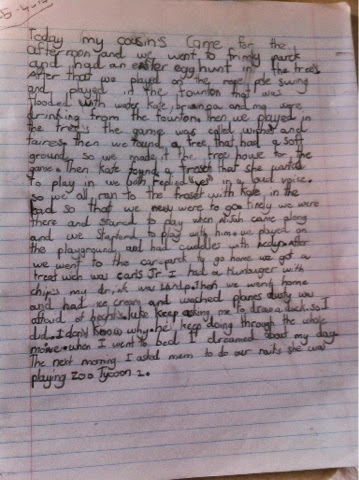 5-4-14
Today my cousins came for the
afternoon and we went to frimly park
and had an easter egg hunt in the trees
After that we played on the rope pole swing
and played in the fountion that was
flooded with water Kate, brianga and me were
drinking from the fountion, then we played in
the tree's the game was called and
faires. then we found a tree that had a soft
ground, so we made it the tree house for the
game. then Kate found a froset that she wanted
To play in we both replied yes in a loud voice.
so we all ran to the froset with Kate in the
lead so that we new were to go. finely we were
there and started to day when along
and we started to play with him. we played on
the playground and had cuddles with after
we went to the carpark to go home we got a
treat wich was carls Jr. I had a Humburger with
chips my drink was Then we went home
and had ice cream and wached planes dusty was
afraid of heights. luke keep asking me to draw a duck. so I
did. I don't know why. he's keep doing through the whole
moive. when I went to bed I dreamed about my day
The next morning I asked mum to do our nails she was
playing Zoo Tycoon 2.